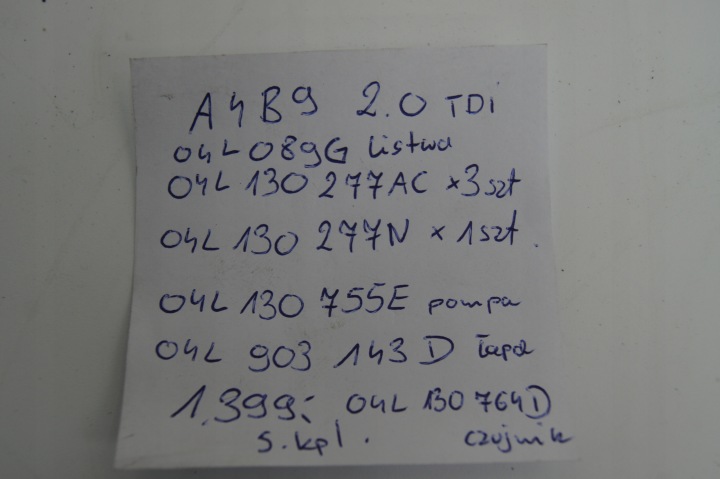 A4B9 2.0 TDi
04L 089G listwa
04L 130 277AC x3szt
04L 130 277N x 1szt.
04L 130 755E pompa
04L 903 143 D łapa
1.399:- 04L 130 764D
s.kpl. czujnik